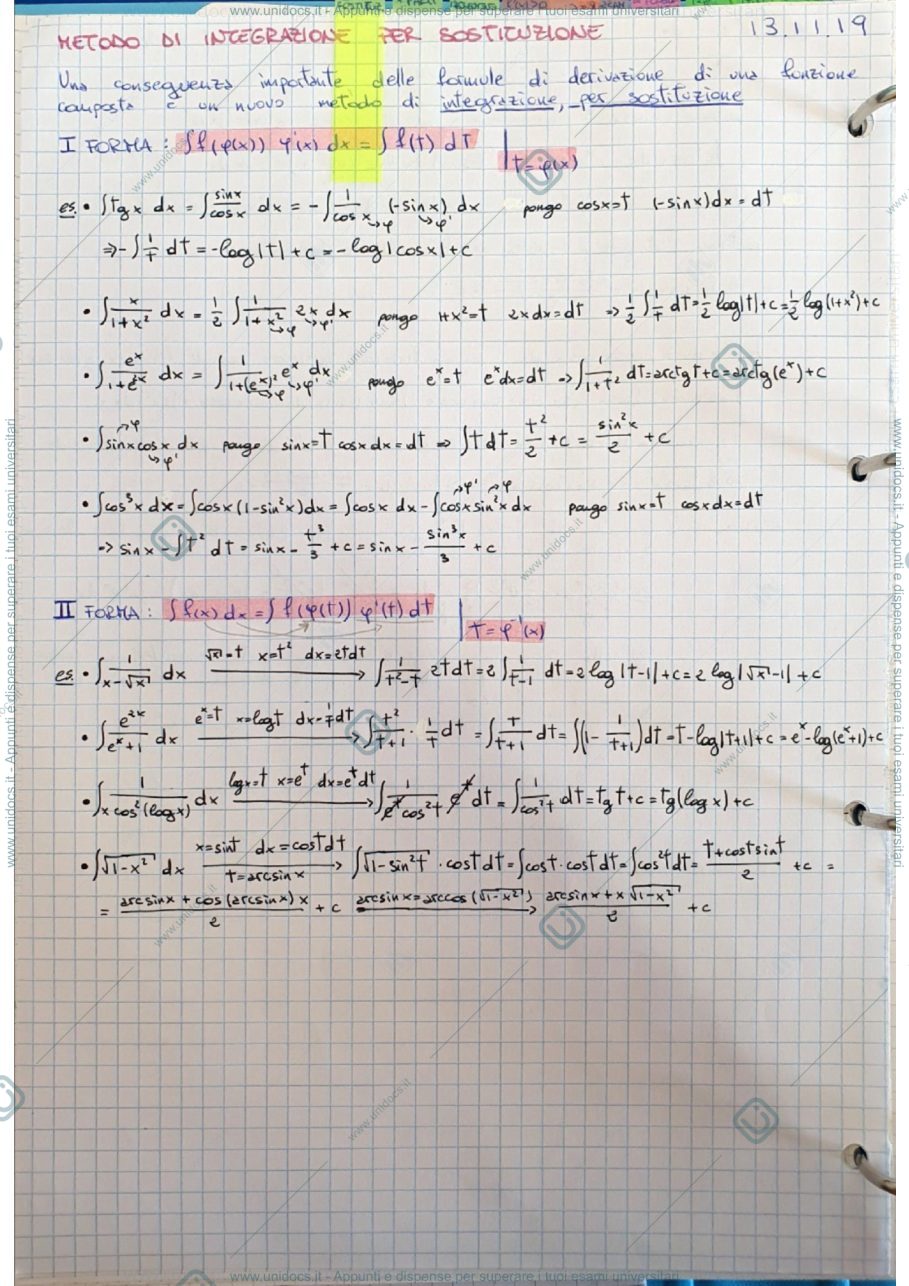 www.unidocs.it - Appunti e dispense per superare i tuoi esami universitari
METODO DI INTEGRAZIONE PER SOSTITUZIONE 13.11.19
Una conseguenza importante delle formule di derivazione di una funzione
composta è un nuovo metodo di integrazione, per sostituzione
I FORMA: ∫f(φ(x)) φ'(x) dx = ∫f(t) dt |t=φ(x)
es. • ∫tgx dx = ∫sinx/cosx dx = -∫1/cosx (-sinx) dx pongo cosx=t (-sinx)dx = dt
→φ →φ'
⇒ -∫1/t dt = -log|t|+c = -log|cosx|+c
• ∫x/(1+x²) dx = 1/2 ∫1/(1+x²) 2x dx pongo 1+x²=t 2xdx=dt ⇒ 1/2 ∫1/t dt = 1/2 log|t|+c = 1/2 log(1+x²)+c
→φ →φ'
• ∫eˣ/(1+e²ˣ) dx = ∫1/(1+(eˣ)²) eˣ dx pongo eˣ=t eˣdx=dt → ∫1/(1+t²) dt = arctgt+c = arctg(eˣ)+c
→φ →φ'
→φ
• ∫sinxcosx dx pongo sinx=t cosxdx=dt ⇒ ∫tdt = t²/2 +c = sin²x/2 +c
→φ'
→φ' →φ
• ∫cos³x dx = ∫cosx(1-sin²x)dx = ∫cosx dx - ∫cosxsin²x dx pongo sinx=t cosxdx=dt
→ sinx - ∫t² dt = sinx - t³/3 +c = sinx - sin³x/3 +c
II FORMA: ∫f(x) dx = ∫f(φ(t)) φ'(t) dt |t=φ⁻¹(x)
es. • ∫1/(x-√x) dx √x=t x=t² dx=2tdt → ∫1/(t²-t) 2tdt = 2∫1/(t-1) dt = 2log|t-1|+c = 2log|√x-1|+c
• ∫e²ˣ/(eˣ+1) dx eˣ=t x=logt dx=1/t dt → ∫t²/(t+1) · 1/t dt = ∫t/(t+1) dt = ∫(1 - 1/(t+1))dt = t-log|t+1|+c = eˣ-log(eˣ+1)+c
• ∫1/(xcos²(logx)) dx logx=t x=eᵗ dx=eᵗdt → ∫1/(eᵗcos²t) eᵗdt = ∫1/cos²t dt = tgt+c = tg(logx)+c
• ∫√(1-x²) dx x=sint dx=costdt t=arcsinx → ∫√(1-sin²t) · costdt = ∫cost·costdt = ∫cos²tdt = (t+costsint)/2 +c =
= (arcsinx+cos(arcsinx)x)/2 +c arcsinx=arccos(√(1-x²)) → (arcsinx+x√(1-x²))/2 +c
www.unidocs.it - Appunti e dispense per superare i tuoi esami universitari